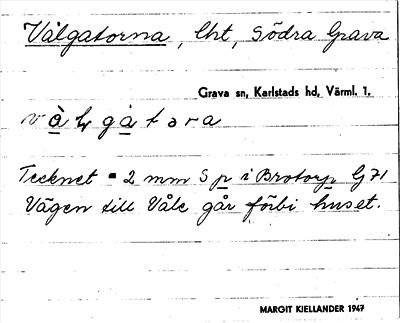 Välgatorna, lht, Södra Grava
Grava sn, Karlstads hd, Värml. 1.
Tecknet = 2 mm S p i Brotorp G71
Vägen till Våle går förbi huset.
MARGIT KIELLANDER 1947